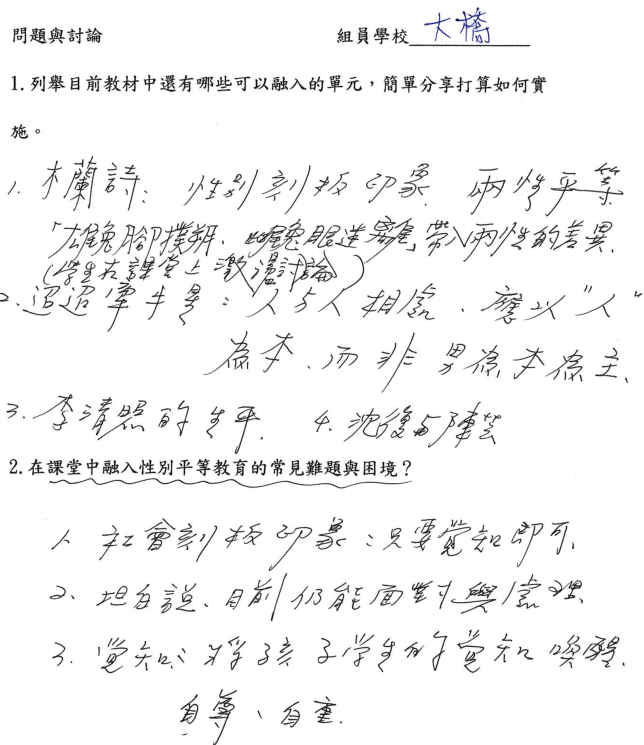 問題與討論 組員學校 大橋
1. 列舉目前教材中還有哪些可以融入的單元,簡單分享打算如何實
施。
1. 木蘭詩:性別刻板印象. 兩性平等
「雄兔腳撲朔,雌兔眼迷離」帶入兩性的差異.
(學生在課堂上激盪討論)
2. 迢迢牽牛星:人与人相處、應以"人"
為本、而非男為本為主.
3. 李清照的生平. 4. 沈復与陳芸
2. 在課堂中融入性別平等教育的常見難題與困境?
1. 社會刻板印象:只要覺知即可.
2. 坦白說、目前仍能面對與處理.
3. 覺知:將孩子學生的覺知喚醒.
自尊、自重.